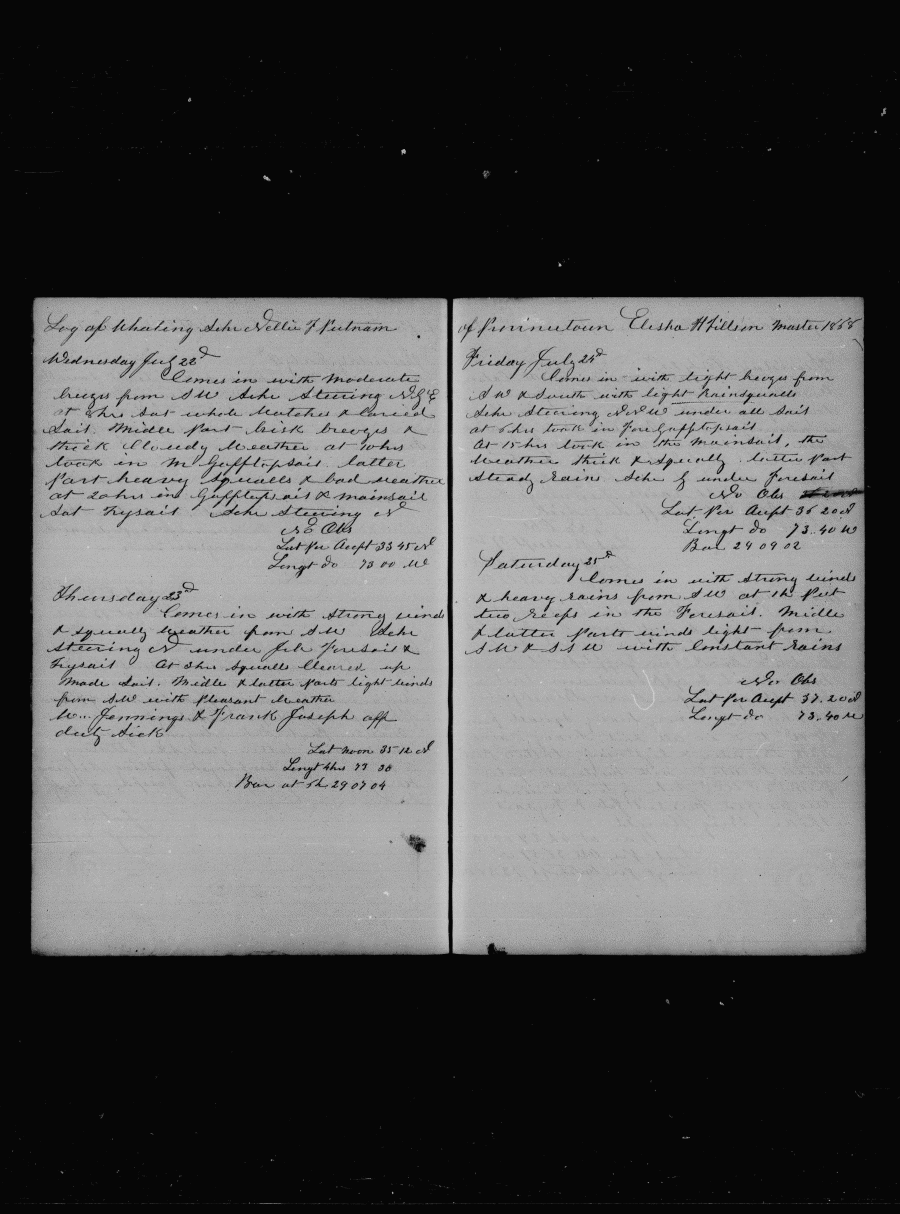 Log of Whaling Schr Nellie F Putnam
Wednesday July 22d
Comes in with Moderate
breezes from SW Schr Steering
at 8hrs Sat whole Watches &
Sail. Middle Part brisk breezes &
thick Cloudy Weather at 10hrs
took in M Gafftopsail. latter
Part heavy Squalls & bad weather
at 20hrs in Gafftopsail & mainsail
Sat trysail Schr Steering N
No Obs
Lat Per Acopt 33 45 N
Longt do 73 00 W
Thursday 23d
Comes in with Strong winds
& Squally Weather from SW Schr
Steering N under Jib Foresail &
trysail At 3hrs Squalls Cleared up
Made Sail. Midle & latter Parts light winds
from SW with Pleasant Weather
Wm Jennings & Frank Joseph off
duty Sick
Lat Noon 35 12 N
Longt 4hrs 73
Bar at 5h 29 07 04
of Provincetown Elisha H Tillson Master 1868
Friday July 24d
Comes in with light breezes from
SW & South with light Rainsqualls
Schr Steering under all Sail
at 6hrs took in Fore Gafftopsail
At 15hrs took in the Mainsail, the
Weather thick & Squally. latter Part
Steady rains. Schr under Foresail
No Obs
Lat Per Acopt 36 20 N
Longt do 73..40 W
Bar 29 09 02
Saturday 25d
Comes in with Strong winds
& heavy rains from SW at 1h Put
two reefs in the Foresail. Midle
& latter Parts winds light from
SW & SSW with Constant rains
No Obs
Lat Per Acopt 37..20 N
Longt do 73..40 W